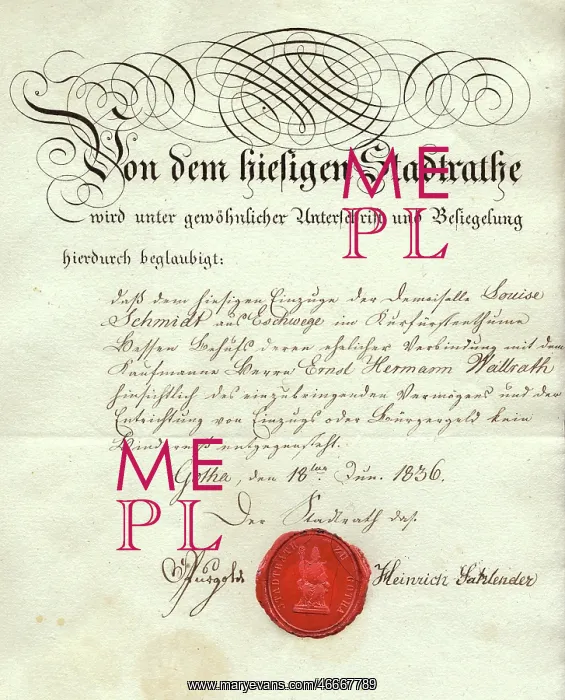 Von dem hiesigen Stadtrathe
wird unter gewöhnlicher Unterschrift und Besiegelung
hierdurch beglaubigt:
daß dem hiesigen Einzuge der Demoiselle Louise
Schmidt aus Eschwege im Kurfürstenthume
Hessen Behufs deren ehelicher Verbindung mit dem
Kaufmanne Herrn Ernst Hermann Wallrath
hinsichtlich des einzubringenden Vermögens und der
Entrichtung von Einzugs oder Bürgergeld kein
Hinderniß entgegensteht.
Gotha, den 18ten Jun. 1836.
Der Stadtrath das.
Purgold
Heinrich Sahlender
STADTRATH ZU GOTHA
ME
PL
ME
PL
www.maryevans.com/46667789